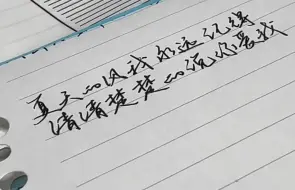 夏天的风我永远记得
清清楚楚的说你爱我